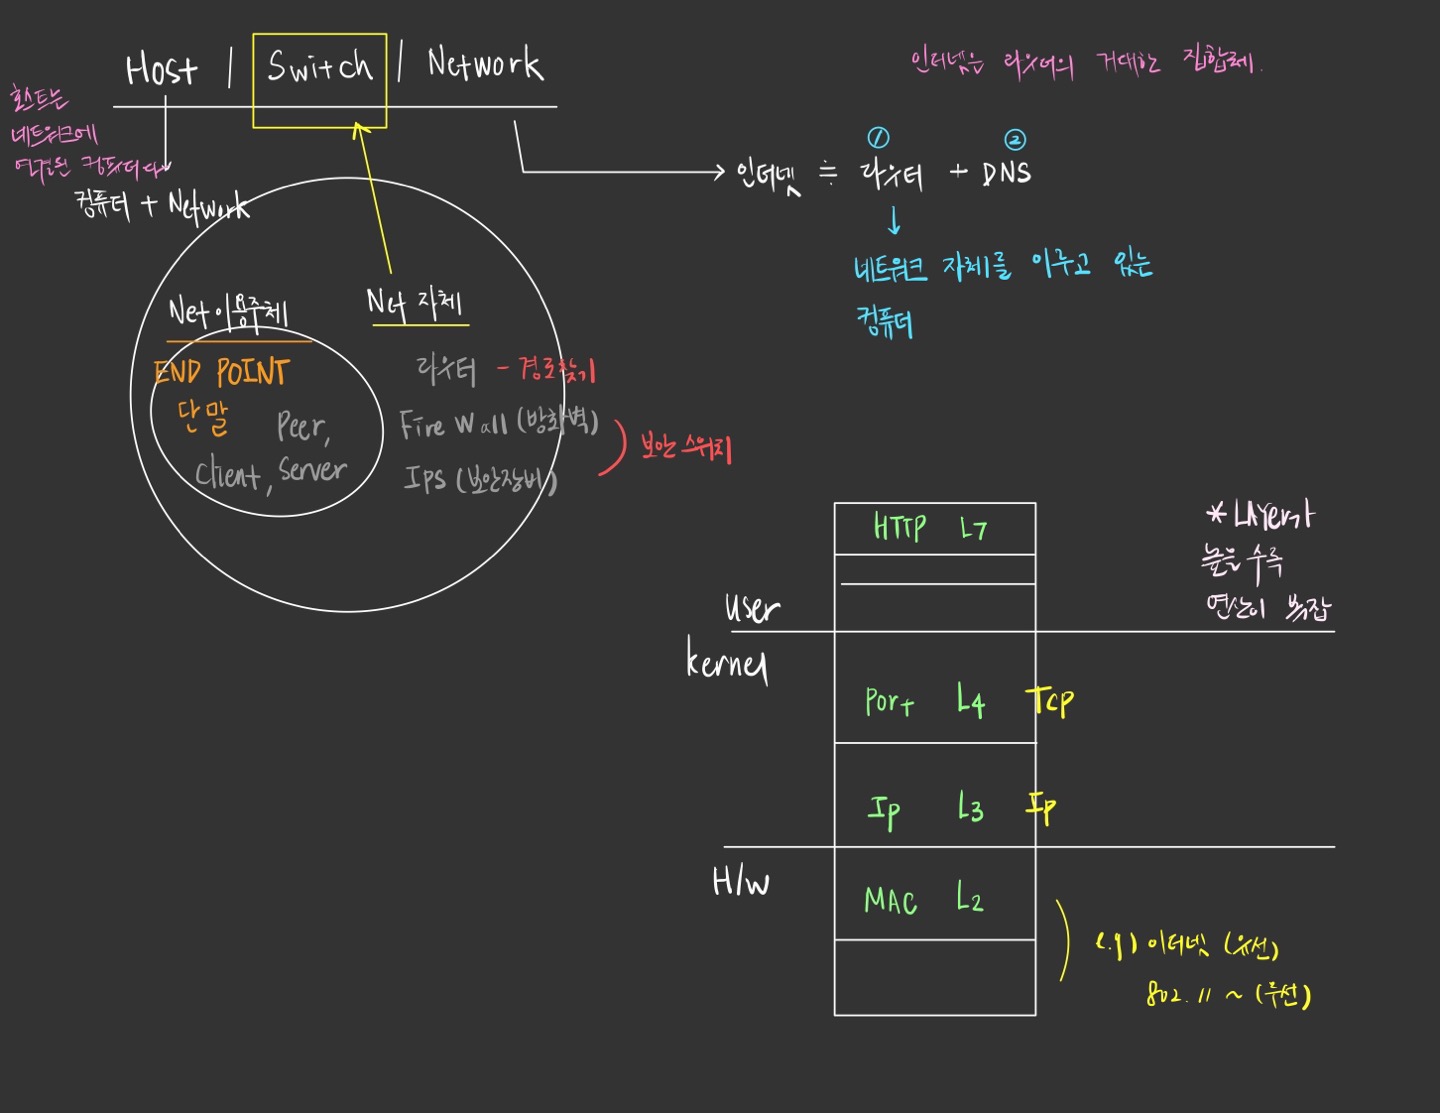 Host | Switch | Network
인터넷은 라우터의 거대한 집합체.
호스트는
네트워크에
연결된 컴퓨터다
컴퓨터 + Network
① ②
인터넷 ≒ 라우터 + DNS
네트워크 자체를 이루고 있는
컴퓨터
Net 이용주체
Net 자체
END POINT
단말
Peer,
Client, Server
라우터 - 경로찾기
Fire Wall (방화벽)
IPS (보안장비)
보안 스위치
HTTP L7
* LAYER가
높을 수록
연산이 복잡
User
kernel
Port L4 TCP
Ip L3 Ip
H/w
MAC L2
e.g) 이더넷 (유선)
802.11 ~ (무선)